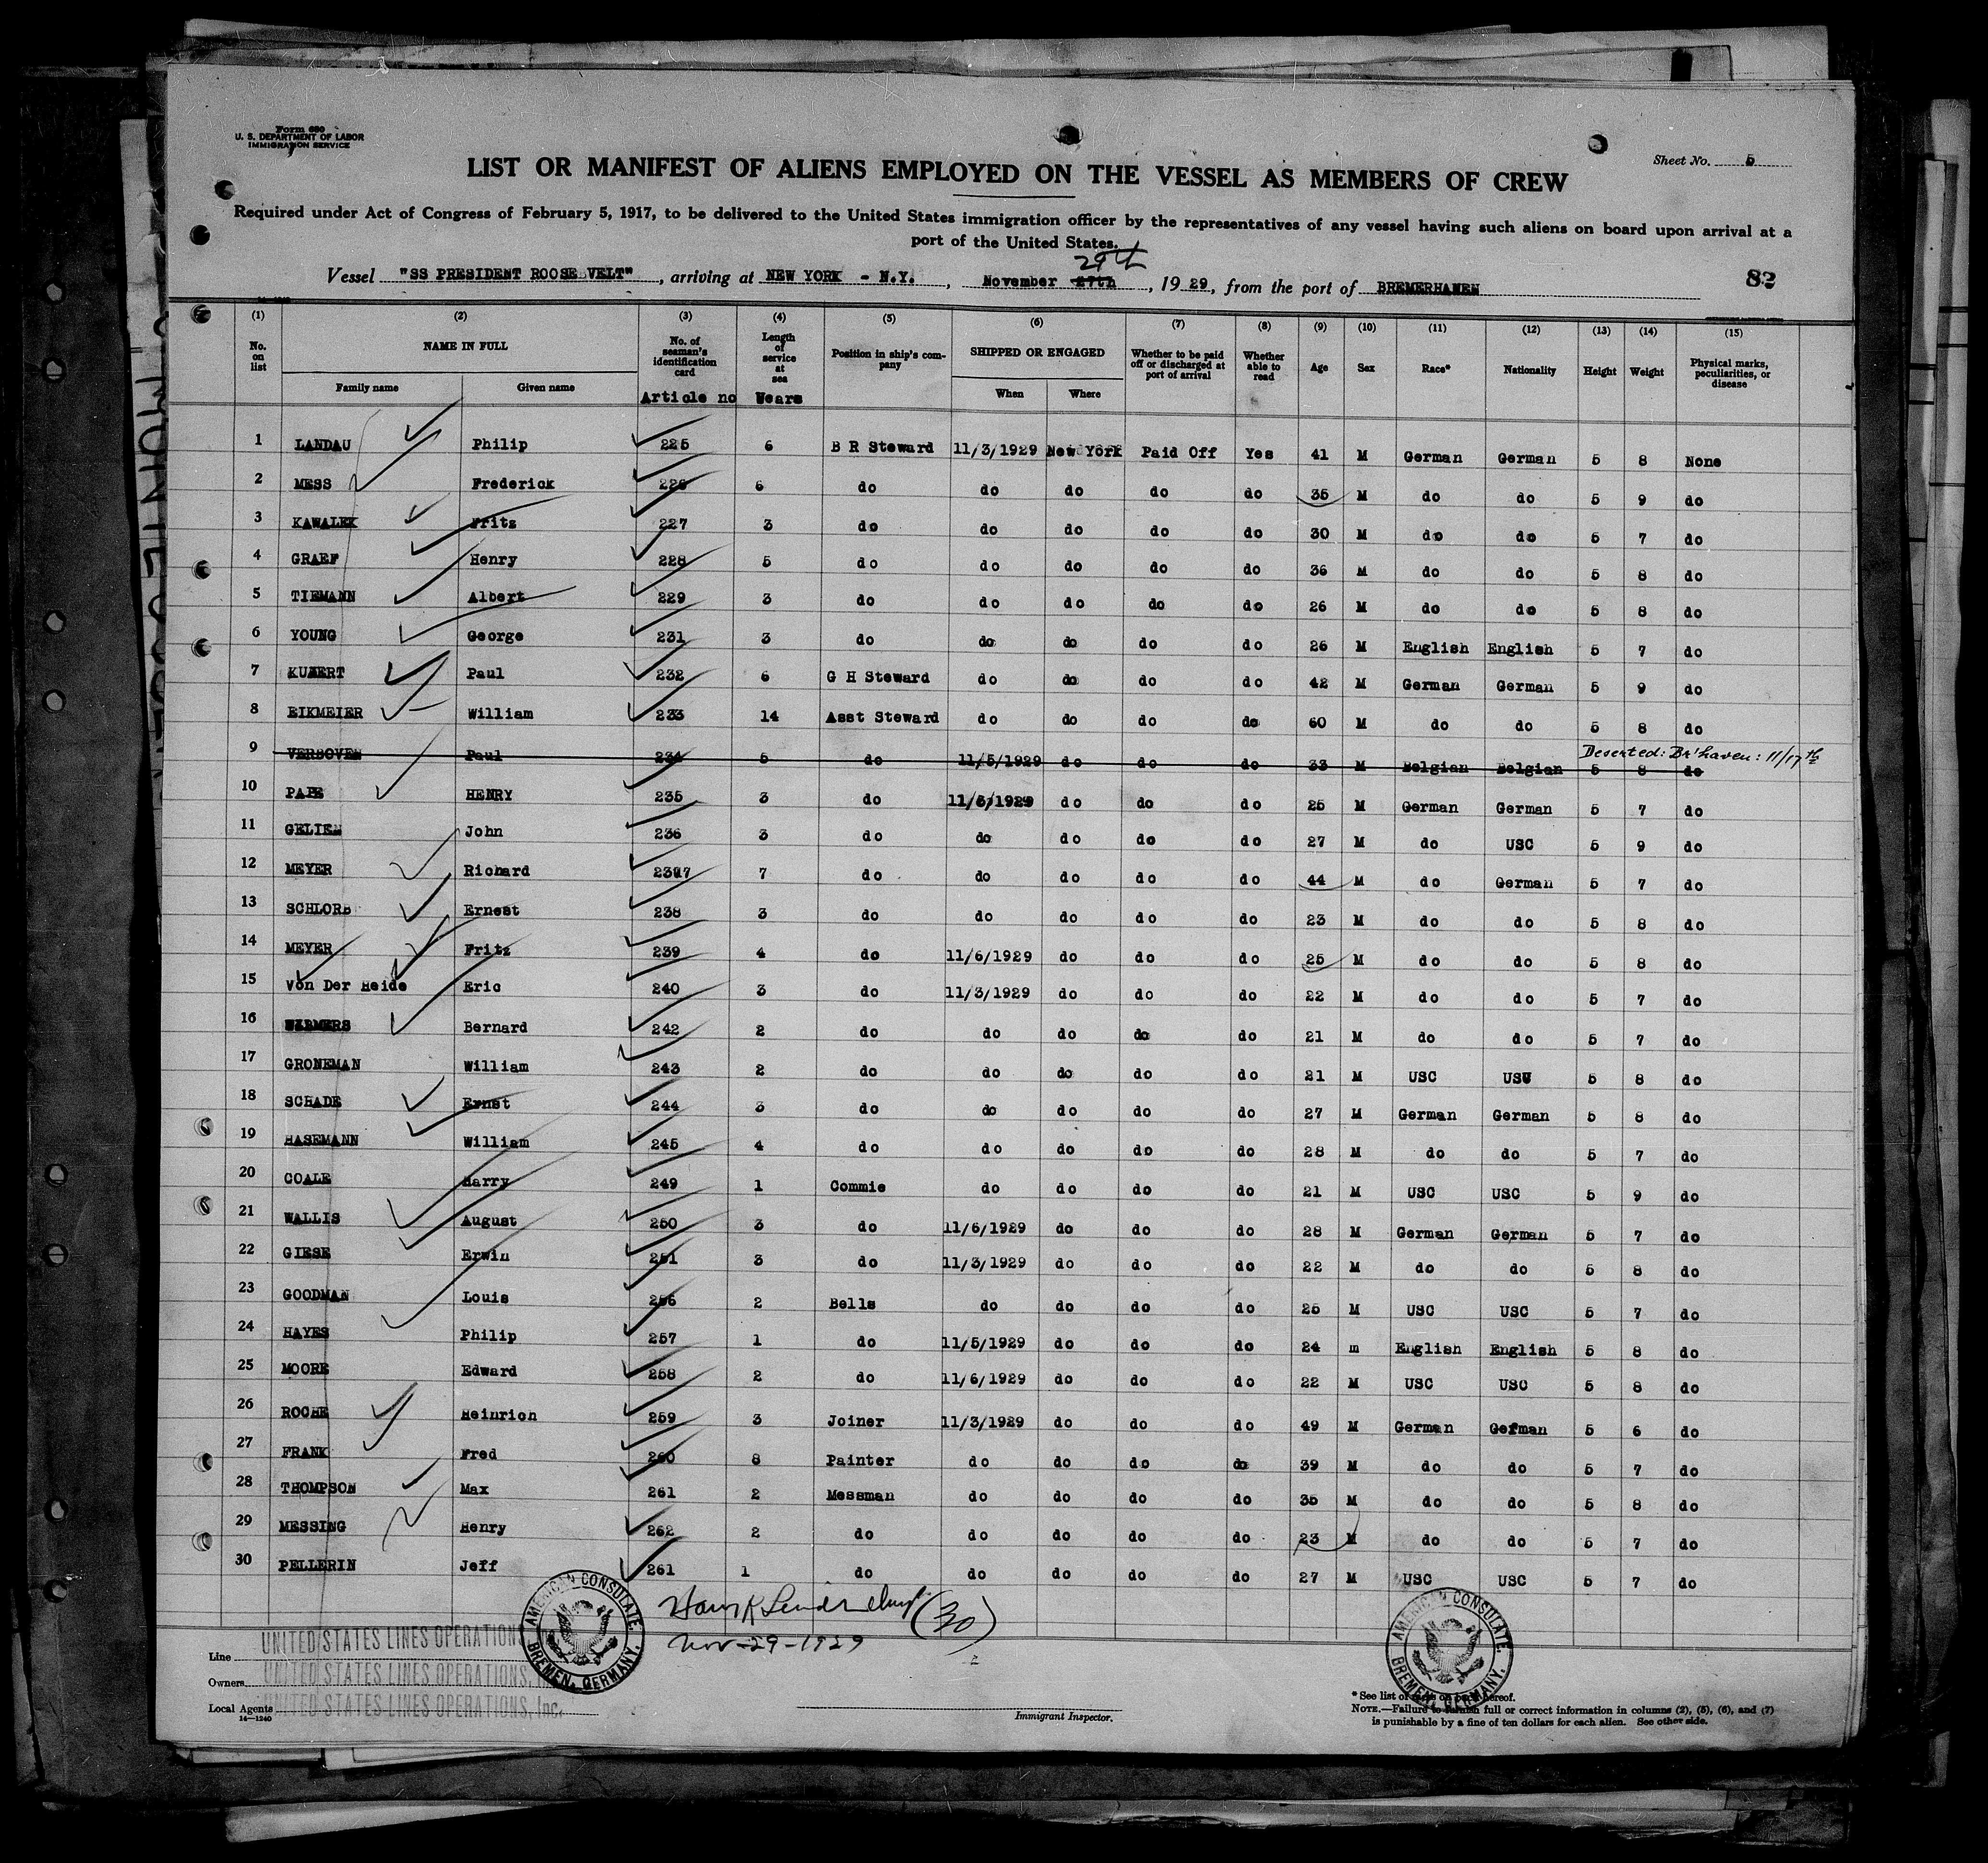 Form 680
U. S. DEPARTMENT OF LABOR
IMMIGRATION SERVICE
Sheet No. 5
LIST OR MANIFEST OF ALIENS EMPLOYED ON THE VESSEL AS MEMBERS OF CREW
Required under Act of Congress of February 5, 1917, to be delivered to the United States immigration officer by the representatives of any vessel having such aliens on board upon arrival at a
port of the United States.
29th
Vessel "SS PRESIDENT ROOSEVELT", arriving at NEW YORK - N.Y., November 27th, 1929, from the port of BREMERHAMEN
82
(1) (2) (3) (4) (5) (6) (7) (8) (9) (10) (11) (12) (13) (14) (15)
No. on list NAME IN FULL Family name Given name No. of seaman's identification card Length of service at sea Position in ship's company SHIPPED OR ENGAGED When Where Whether to be paid off or discharged at port of arrival Whether able to read Age Sex Race* Nationality Height Weight Physical marks, peculiarities, or disease
Article no Wears
1 LANDAU Philip 225 6 B R Steward 11/3/1929 New York Paid Off Yes 41 M German German 5 8 None
2 MESS Frederick 226 6 do do do do do 35 M do do 5 9 do
3 KAWALEK Fritz 227 3 do do do do do 30 M do do 5 7 do
4 GRAEF Henry 228 5 do do do do do 36 M do do 5 8 do
5 TIEMANN Albert 229 3 do do do do do 26 M do do 5 8 do
6 YOUNG George 231 3 do do do do do 26 M English English 5 7 do
7 Paul 232 6 G H Steward do do do do 42 M German German 5 9 do
8 EIKMEIER William 233 14 Asst Steward do do do do 60 M do do 5 8 do
Deserted: Br'haven: 11/17th
9 VERBOVEN Paul 234 5 do 11/5/1929 do do do 33 M Belgian Belgian 5 8 do
10 PAPE HENRY 235 3 do 11/3/1929 do do do 25 M German German 5 7 do
11 GELIEN John 236 3 do do do do do 27 M do USC 5 9 do
12 MEYER Richard 2397 7 do do do do do 44 M do German 5 7 do
13 SCHLORB Ernest 238 3 do do do do do 23 M do do 5 8 do
14 MEYER Fritz 239 4 do 11/6/1929 do do do 25 M do do 5 8 do
15 Von Der Heide Eric 240 3 do 11/3/1929 do do do 22 M do do 5 7 do
16 Bernard 242 2 do do do do do 21 M do do 5 7 do
17 GRONEMAN William 243 2 do do do do do 21 M USC USC 5 8 do
18 SCHADE Ernst 244 3 do do do do do 27 M German German 5 8 do
19 HASEMANN William 245 4 do do do do do 28 M do do 5 7 do
20 COALE Harry 249 1 Commie do do do do 21 M USC USC 5 9 do
21 WALLIS August 250 3 do 11/6/1929 do do do 28 M German German 5 7 do
22 GIESE Erwin 251 3 do 11/3/1929 do do do 22 M do do 5 8 do
23 GOODMAN Louis 256 2 Bells do do do do 25 M USC USC 5 7 do
24 HAYES Philip 257 1 do 11/5/1929 do do do 24 m English English 5 8 do
25 MOORE Edward 258 2 do 11/6/1929 do do do 22 M USC USC 5 8 do
26 ROCHE Heinrich 259 3 Joiner 11/3/1929 do do do 49 M German German 5 6 do
27 FRANK Fred 260 8 Painter do do do do 39 M do do 5 7 do
28 THOMPSON Max 261 2 Messman do do do do 35 M do do 5 8 do
29 MESSING Henry 262 2 do do do do do 23 M do do 5 7 do
30 PELLERIN Jeff 261 1 do do do do do 27 M USC USC 5 7 do
(30)
Nov-29-1929
AMERICAN CONSULATE. BREMEN, GERMANY.
AMERICAN CONSULATE. BREMEN, GERMANY.
Line UNITED STATES LINES OPERATIONS
Owners UNITED STATES LINES OPERATIONS,
Local Agents UNITED STATES LINES OPERATIONS, Inc.
14—1240
Immigrant Inspector.
* See list of races on back hereof.
NOTE.—Failure to furnish full or correct information in columns (2), (5), (6), and (7)
is punishable by a fine of ten dollars for each alien. See other side.